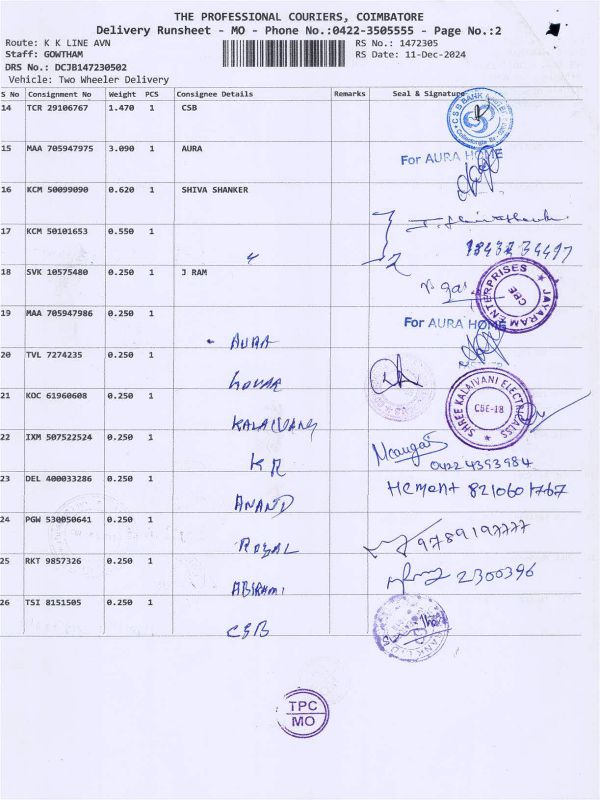 THE PROFESSIONAL COURIERS, COIMBATORE
Delivery Runsheet - MO - Phone No.:0422-3505555 - Page No.:2
Route: K K LINE AVN RS No.: 1472305
Staff: GOWTHAM RS Date: 11-Dec-2024
DRS No.: DCJB147230502
Vehicle: Two Wheeler Delivery
S No Consignment No Weight PCS Consignee Details Remarks Seal & Signature
14 TCR 29106767 1.470 1 CSB
CSB BANK
15 MAA 705947975 3.090 1 AURA
For AURA HOME
16 KCM 50099090 0.620 1 SHIVA SHANKER
17 KCM 50101653 0.550 1 "
18 SVK 10575480 0.250 1 J RAM
JAYARAM ENTERPRISES
CBE
19 MAA 705947986 0.250 1 AURA
For AURA HOME
20 TVL 7274235 0.250 1
21 KOC 61960608 0.250 1
SHREE KALAIVANI ELECTRICALSS
CBE-18
22 IXM 507522524 0.250 1 KR
0422 4393984
23 DEL 400033286 0.250 1 ANAND
24 PGW 530050641 0.250 1 ROYAL
25 RKT 9857326 0.250 1 ABIRAMI
2300396
26 TSI 8151505 0.250 1 CSB
TPC
MO